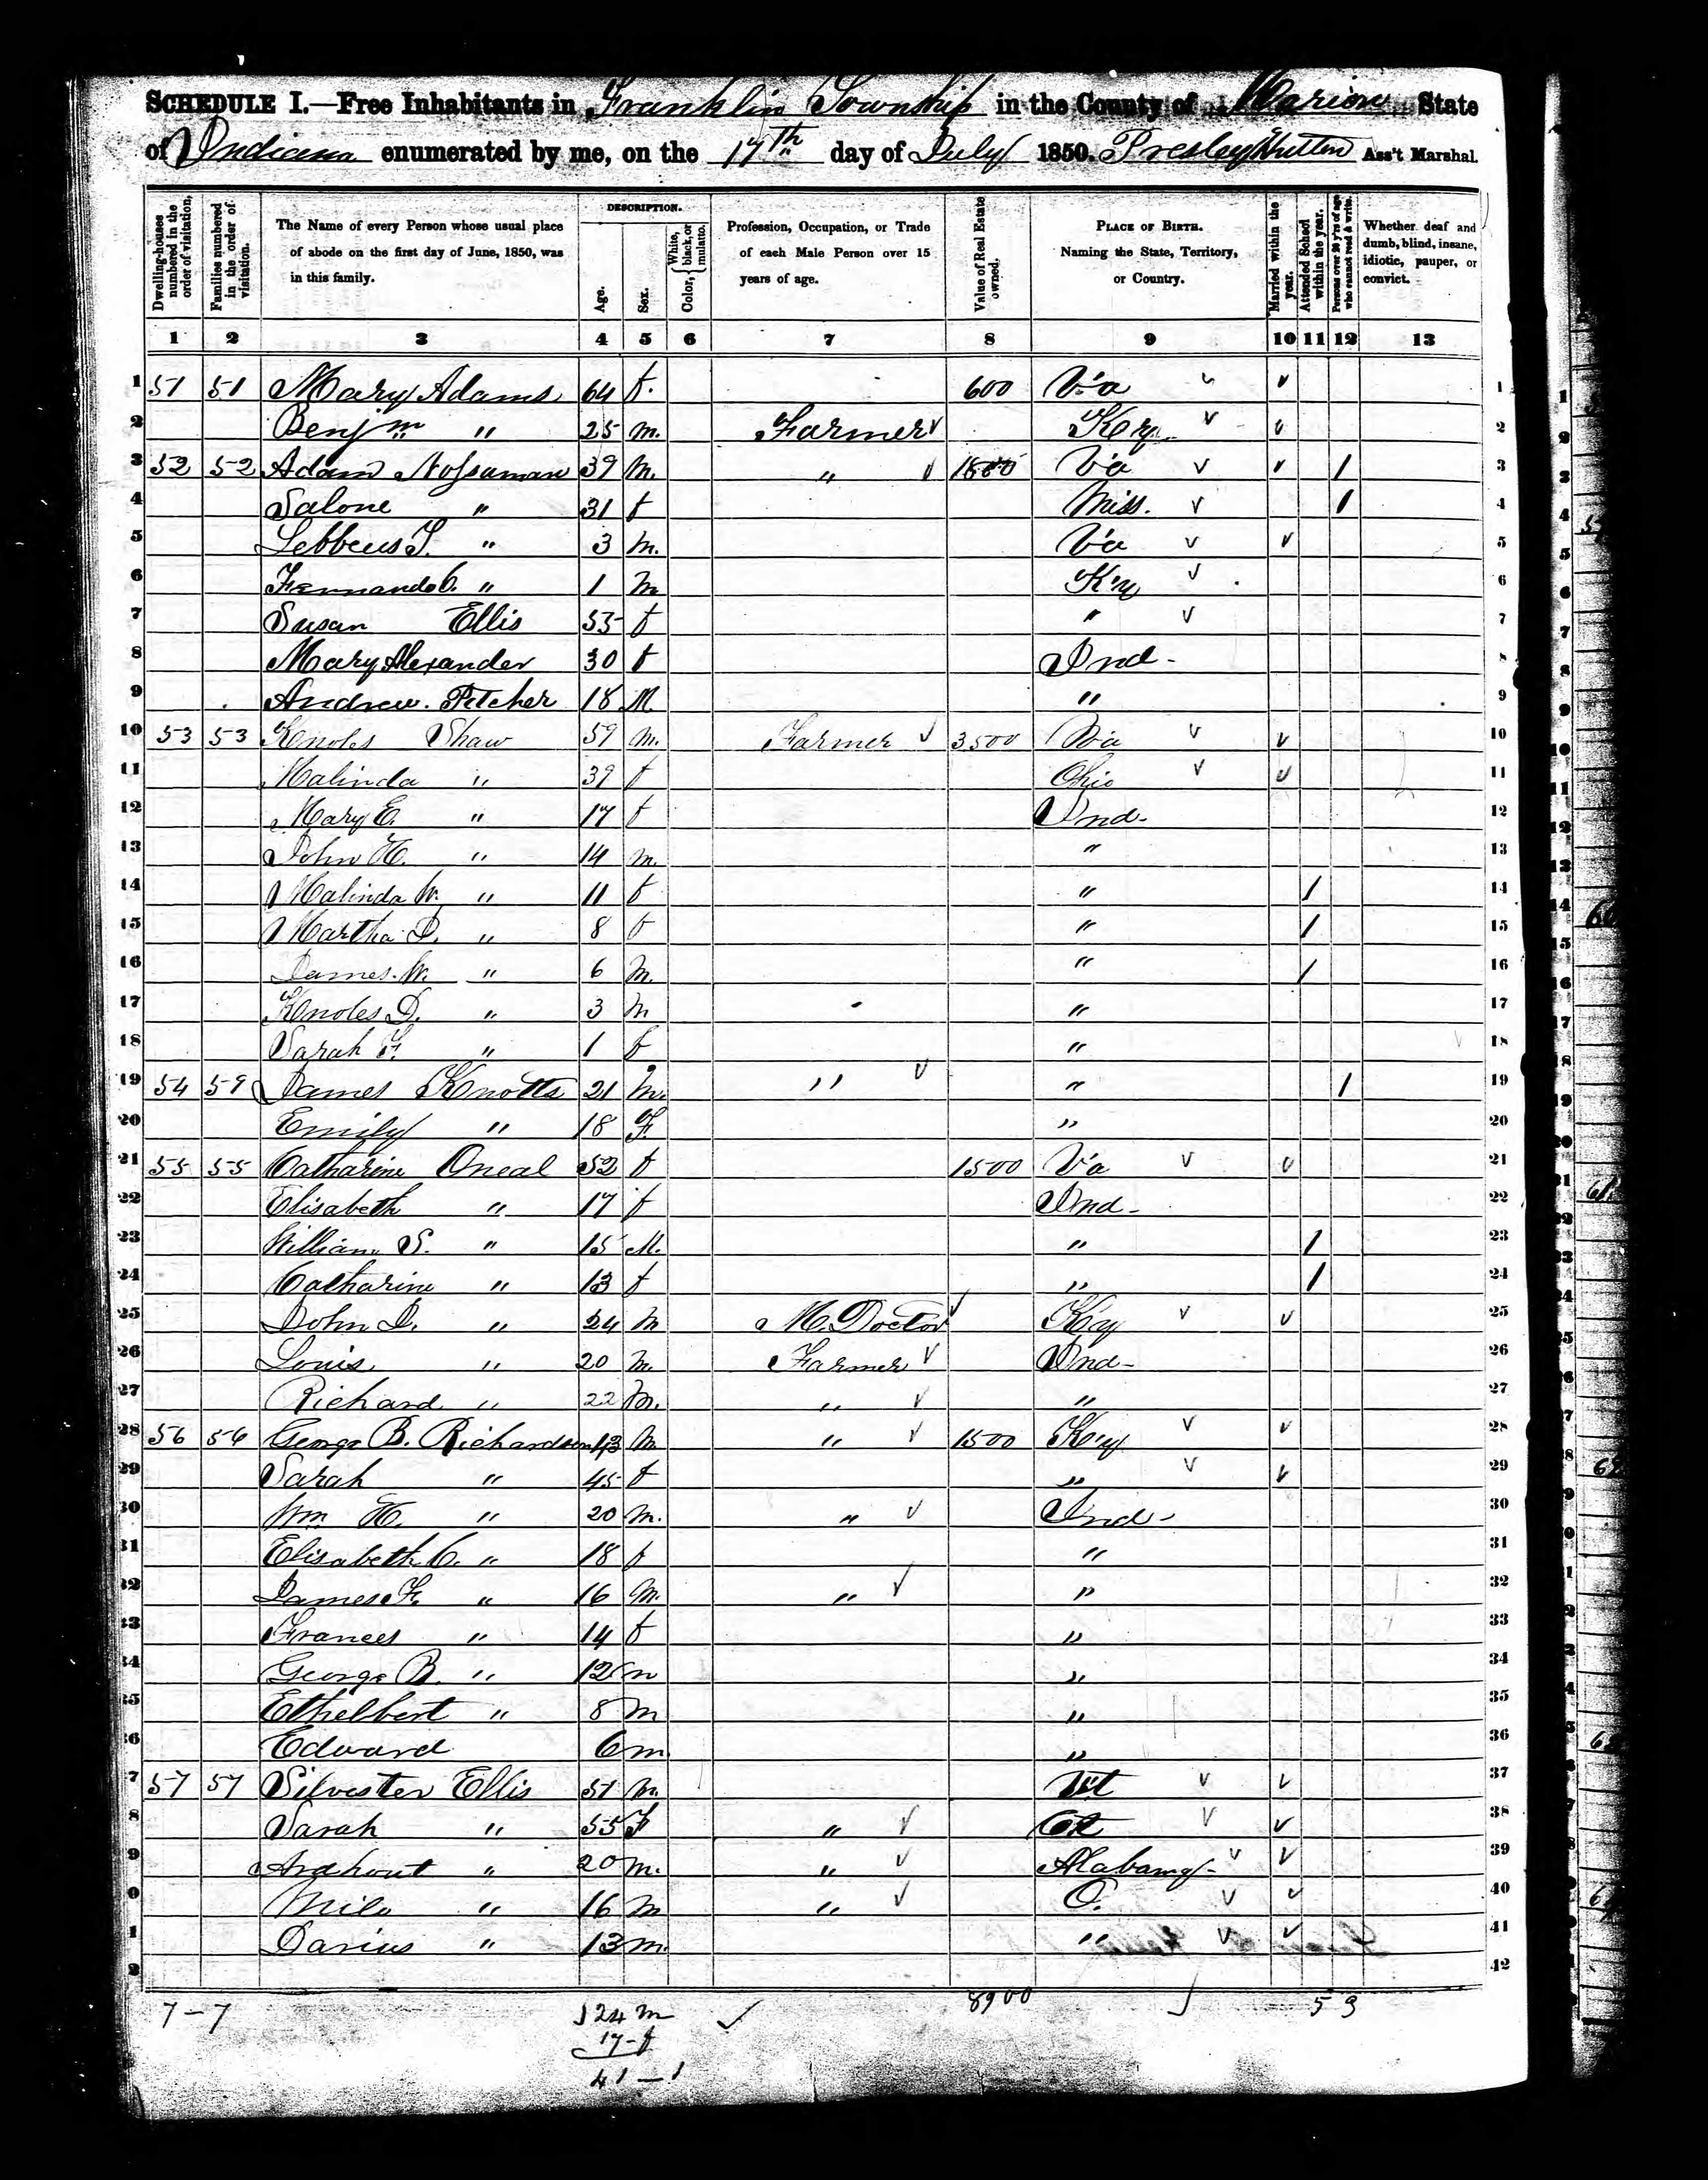 SCHEDULE I.—Free Inhabitants in Franklin Township in the County of Marion State
of Indiana enumerated by me, on the 17th day of July 1850. Presley Hutton Ass't Marshal.
Dwelling-houses numbered in the order of visitation.
Families numbered in the order of visitation.
The Name of every Person whose usual place of abode on the first day of June, 1850, was in this family.
DESCRIPTION.
Age.
Sex.
Color, { White, black, or mulatto.
Profession, Occupation, or Trade of each Male Person over 15 years of age.
Value of Real Estate owned.
PLACE OF BIRTH. Naming the State, Territory, or Country.
Married within the year.
Attended School within the year.
Persons over 20 y'rs of age who cannot read & write.
Whether deaf and dumb, blind, insane, idiotic, pauper, or convict.
1 2 3 4 5 6 7 8 9 10 11 12 13
1 51 51 Mary Adams 64 f. 600 Va 1
2 Benjm " 25 m. Farmer Ky 2
3 52 52 Adam Nossaman 39 m. " Va 1 3
4 Salone " 31 f Miss. 1 4
5 Lebbeus T. " 3 m. Va 5
6 Fernando C. " 1 m Ky 6
7 Susan Ellis 55 f " 7
8 Mary Alexander 30 f Ind- 8
9 Andrew Pitcher 18 M " 9
10 53 53 Knoles Shaw 59 m. Farmer 3500 Va 10
11 Malinda " 39 f Ohio 11
12 Mary E. " 17 f Ind- 12
13 John H. " 14 m. " 13
14 Malinda W. " 11 f " 1 14
15 Martha D. " 8 f " 1 15
16 James W. " 6 m. " 1 16
17 Knoles D. " 3 m " 17
18 Sarah F. " 1 f " 18
19 54 54 James Knotts 21 m. " " 1 19
20 Emily " 18 F. " 20
21 55 55 Catharine Oneal 52 f 1500 Va 21
22 Elisabeth " 17 f Ind- 22
23 William S. " 15 M. " 1 23
24 Catharine " 13 f " 1 24
25 John D. " 24 m M. Doctor Ky 25
26 Louis " 20 m. Farmer Ind- 26
27 Richard " 22 m. " " 27
28 56 56 George B. Richardson 43 m " 1500 Ky 28
29 Sarah " 45 f " 29
30 Wm H. " 20 m. " Ind- 30
31 Elisabeth C. " 18 f " 31
32 James F. " 16 m. " " 32
33 Frances " 14 f " 33
34 George B. " 12 m " 34
35 Ethelbert " 8 m " 35
36 Edward 6 m. " 36
37 57 57 Silvester Ellis 51 m. Vt 37
38 Sarah " 55 F " Ct 38
39 " 20 m. " Alabama 39
40 Milo " 16 m " O. 40
41 Darius " 13 m. " 41
42
7-7 24 m 8900 5 3
17-f
41-1